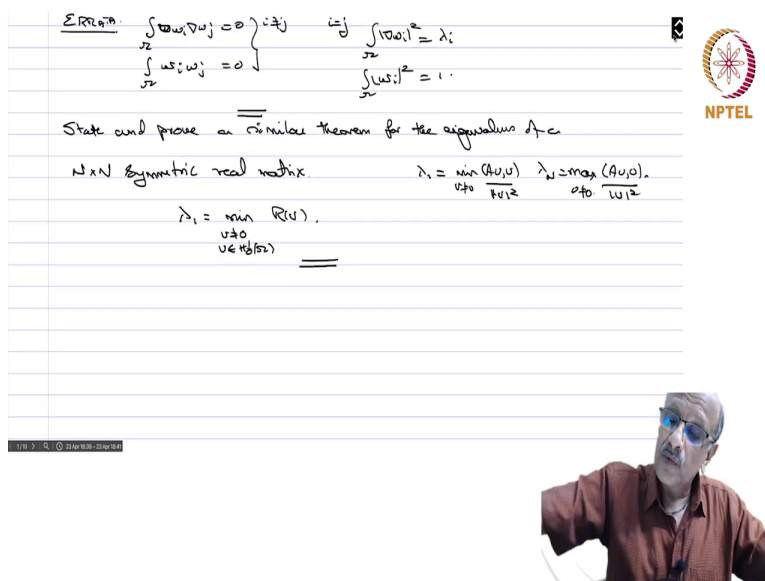 ERRATA. ∫_Ω ∇w_i ∇w_j = 0 } i≠j i=j ∫_Ω |∇w_i|² = λ_i
∫_Ω w_i w_j = 0 ∫_Ω |w_i|² = 1.
State and prove a similar theorem for the eigenvalues of a
N×N symmetric real matrix. λ_1 = min_{v≠0} (Av,v)/|v|² λ_N = max_{v≠0} (Av,v)/|v|².
λ_1 = min_{v≠0, v∈H¹₀(Ω)} R(v).
NPTEL
1/10 23 Apr 18:39 – 23 Apr 18:41